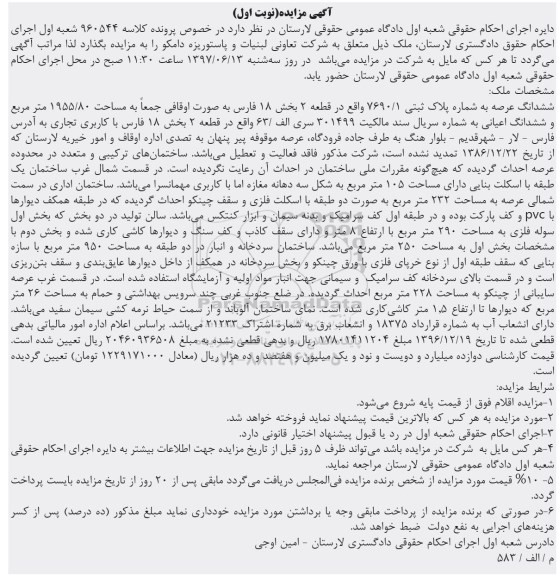 آگهی مزایده(نوبت اول)
دایره اجرای احکام حقوقی شعبه اول دادگاه عمومی حقوقی لارستان در نظر دارد در خصوص پرونده کلاسه ۹۶۰۵۴۴ شعبه اول اجرای
احکام حقوق دادگستری لارستان، ملک ذیل متعلق به شرکت تعاونی لبنیات و پاستوریزه دامکو را به مزایده بگذارد لذا مراتب آگهی
می‌گردد تا هر کس که مایل به شرکت در مزایده می‌باشد در روز سه‌شنبه ۱۳۹۷/۰۶/۱۳ ساعت ۱۱:۳۰ صبح در محل اجرای احکام
حقوقی شعبه اول دادگاه عمومی حقوقی لارستان حضور یابد.
مشخصات ملک:
ششدانگ عرصه به شماره پلاک ثبتی ۷۶۹۰/۱ واقع در قطعه ۲ بخش ۱۸ فارس به صورت اوقافی جمعاً به مساحت ۱۹۵۵/۸۰ متر مربع
و ششدانگ اعیانی به شماره سریال سند مالکیت ۳۰۱۴۹۹ سری الف /۶۳ واقع در قطعه ۲ بخش ۱۸ فارس با کاربری تجاری به آدرس
فارس - لار - شهرقدیم - بلوار هنگ به طرف جاده فرودگاه، عرصه موقوفه پیر پنهان به تصدی اداره اوقاف و امور خیریه لارستان که
از تاریخ ۱۳۸۶/۱۲/۲۲ تمدید نشده است، شرکت مذکور فاقد فعالیت و تعطیل می‌باشد. ساختمان‌های ترکیبی و متعدد در محدوده
عرصه احداث گردیده که هیچ‌گونه مقررات ملی ساختمان در احداث آن رعایت نگردیده است. در قسمت شمال غرب ساختمان یک
طبقه با اسکلت بنایی دارای مساحت ۱۰۵ متر مربع به شکل سه دهانه مغازه اما با کاربری مهمانسرا می‌باشد. ساختمان اداری در سمت
شمالی عرصه به مساحت ۲۳۲ متر مربع به صورت دو طبقه با اسکلت فلزی و سقف چینکو احداث گردیده که در طبقه همکف دیوارها
با pvc و کف پارکت بوده و در طبقه اول کف سرامیک و بدنه سیمان و ابزار کنتکس می‌باشد. سالن تولید در دو بخش که بخش اول
سوله فلزی به مساحت ۲۹۰ متر مربع با ارتفاع ۶ متر و دارای سقف کاذب و کف سنگ و دیوارها کاشی کاری شده و بخش دوم با
مشخصات بخش اول به مساحت ۲۵۰ متر مربع می‌باشد. ساختمان سردخانه و انبار در دو طبقه به مساحت ۹۵۰ متر مربع با سازه
بنایی که سقف طبقه اول از نوع خرپای فلزی با ورق چینکو و بخش سردخانه در همکف از داخل دیوارها عایق‌بندی و سقف بتن‌ریزی
است و در قسمت بالای سردخانه کف سرامیک و سیمانی جهت انبار مواد اولیه و آزمایشگاه استفاده شده است. در قسمت غرب عرصه
سایبانی از چینکو به مساحت ۲۲۸ متر مربع احداث گردیده. در ضلع جنوب غربی چند سرویس بهداشتی و حمام به مساحت ۲۶ متر
مربع که دیوارها تا ارتفاع ۱٫۵ متر کاشی‌کاری شده است. نمای ساختمان آلوباند و از سمت حیاط نرمه کشی سیمان سفید می‌باشد.
دارای انشعاب آب به شماره قرارداد ۱۸۳۷۵ و انشعاب برق به شماره اشتراک ۲۱۲۳۳ می‌باشد. براساس اعلام اداره امور مالیاتی بدهی
قطعی شده تا تاریخ ۱۳۹۶/۱۲/۱۹ مبلغ ۱۷۸۰۱۴۱۱۲۰۴ ریال و بدهی قطعی نشده به مبلغ ۲۰۴۶۰۹۳۶۵۰۸ ریال تعیین شده است.
قیمت کارشناسی دوازده میلیارد و دویست و نود و یک میلیون و هفتصد و ده هزار ریال (معادل ۱۲۲۹۱۷۱۰۰۰ تومان) تعیین گردیده
است.
شرایط مزایده:
۱-مزایده اقلام فوق از قیمت پایه شروع می‌شود.
۲-مورد مزایده به هر کس که بالاترین قیمت پیشنهاد نماید فروخته خواهد شد.
۳-اجرای احکام حقوقی شعبه اول در رد یا قبول پیشنهاد اختیار قانونی دارد.
۴-هر کس مایل به شرکت در مزایده باشد می‌تواند ظرف ۵ روز قبل از تاریخ مزایده جهت اطلاعات بیشتر به دایره اجرای احکام حقوقی
شعبه اول دادگاه عمومی حقوقی لارستان مراجعه نماید.
۵- ۱۰% قیمت مورد مزایده از شخص برنده مزایده فی‌المجلس دریافت می‌گردد مابقی پس از ۲۰ روز از تاریخ مزایده بایست پرداخت
گردد.
۶-در صورتی که برنده مزایده از پرداخت مابقی وجه یا برداشتن مورد مزایده خودداری نماید مبلغ مذکور (ده درصد) پس از کسر
هزینه‌های اجرایی به نفع دولت ضبط خواهد شد.
دادرس شعبه اول اجرای احکام حقوقی دادگستری لارستان - امین اوجی
م / الف / ۵۸۳